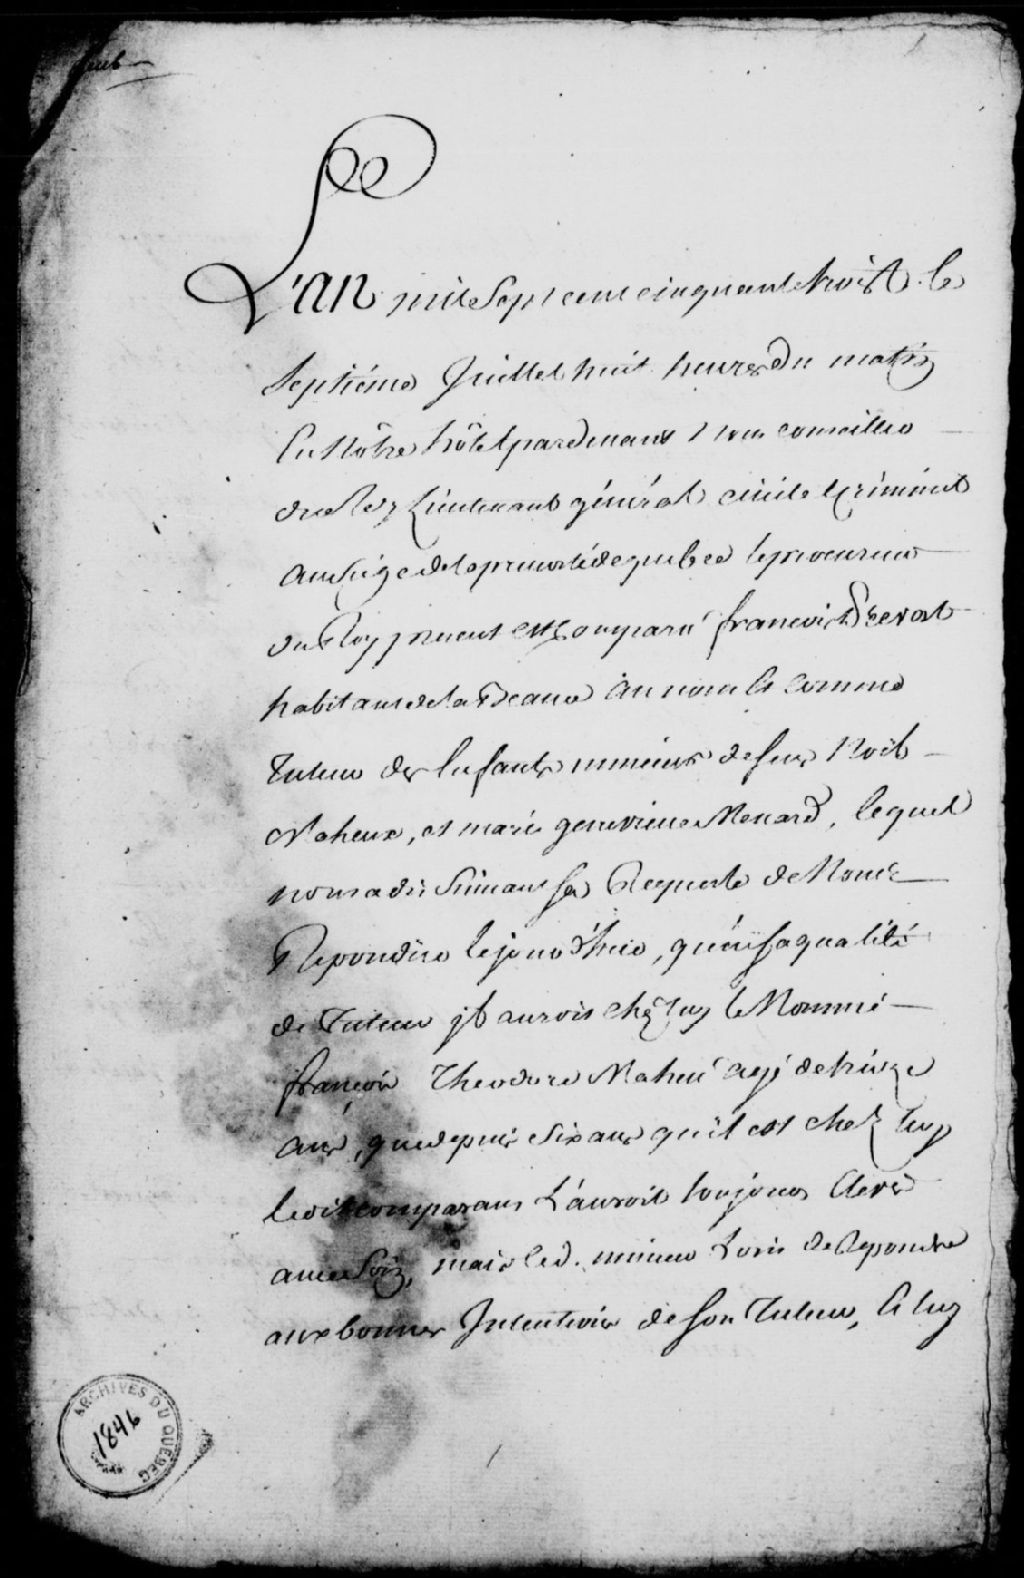 L'an mil sept cent cinquante trois le
septiéme Juillet huit heures du matin
En Nôtre hôtel pardevant Nous conseiller
du Roy Lieutenant général civil et criminel
au siége de la prevosté de quebec le procureur
du Roy present est comparu françois Prevost
habitant de la Beauce au nom et comme
Tuteur des Enfants mineurs de feu Noël
Maheux, et marie genevieve Menard, lequel
nous a dit suivant sa Requeste de Nous
Repondüe le jour d'hier, qu'en sa qualité
de Tuteur il auroit chez luy le Nommé
françois Theodore Maheu agé de treize
ans, que depuis six ans qu'il est chez luy
led. comparant L'auroit toujours Elevé
avec soin, mais led. mineur Loin de Repondre
aux bonnes Intentions de son Tuteur, Et luy
ARCHIVES DU QUEBEC
1846